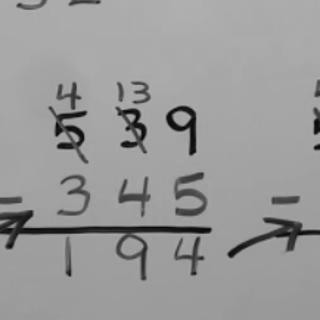 4 13
5 3 9
- 3 4 5
1 9 4
-